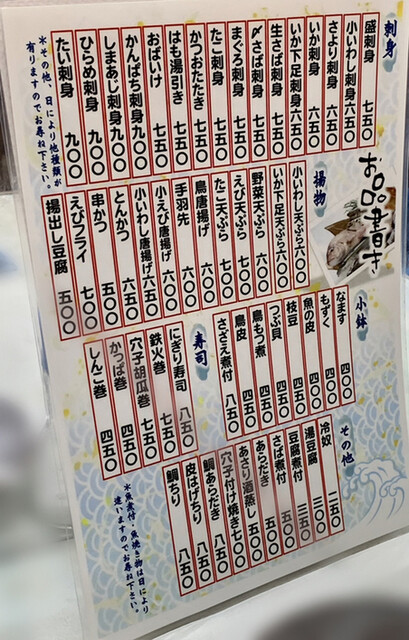 お品書き
刺身
盛刺身 七五〇
小いわし刺身 六五〇
さより刺身 六五〇
いか刺身 六五〇
いか下足刺身 六五〇
生さば刺身 七五〇
〆さば刺身 七五〇
まぐろ刺身 七五〇
たこ刺身 七五〇
かつおたたき 七五〇
はも湯引き 七五〇
おばいけ 七五〇
かんぱち刺身 九〇〇
しまあじ刺身 九〇〇
ひらめ刺身 九〇〇
たい刺身 九〇〇
※その他、日により他種類が
有りますのでお尋ね下さい。
揚物
小いわし天ぷら 六〇〇
いか下足天ぷら 六〇〇
野菜天ぷら 六〇〇
えび天ぷら 七〇〇
たこ天ぷら 六〇〇
鳥唐揚げ 六〇〇
手羽先 六〇〇
小えび唐揚げ 六〇〇
小いわし唐揚げ 六五〇
とんかつ 六五〇
串かつ 五〇〇
えびフライ 七〇〇
揚出し豆腐 五〇〇
小鉢
なます 四〇〇
もずく 四〇〇
魚の皮 四五〇
枝豆 四五〇
つぶ貝 四五〇
鳥もつ煮 四五〇
鳥皮 四五〇
さざえ煮付 八五〇
寿司
にぎり寿司 八五〇
鉄火巻 七五〇
穴子胡瓜巻 七五〇
かっぱ巻 四五〇
しんこ巻 四五〇
その他
冷奴 二五〇
湯豆腐 三五〇
豆腐煮付 三五〇
さば煮付 五五〇
あらだき 五〇〇
あさり酒蒸し 五〇〇
穴子付け焼き 七〇〇
鯛あらだき 八五〇
皮はげちり 八五〇
鯛ちり 八五〇
※魚煮付・魚焼き物は日により
違いますのでお尋ね下さい。